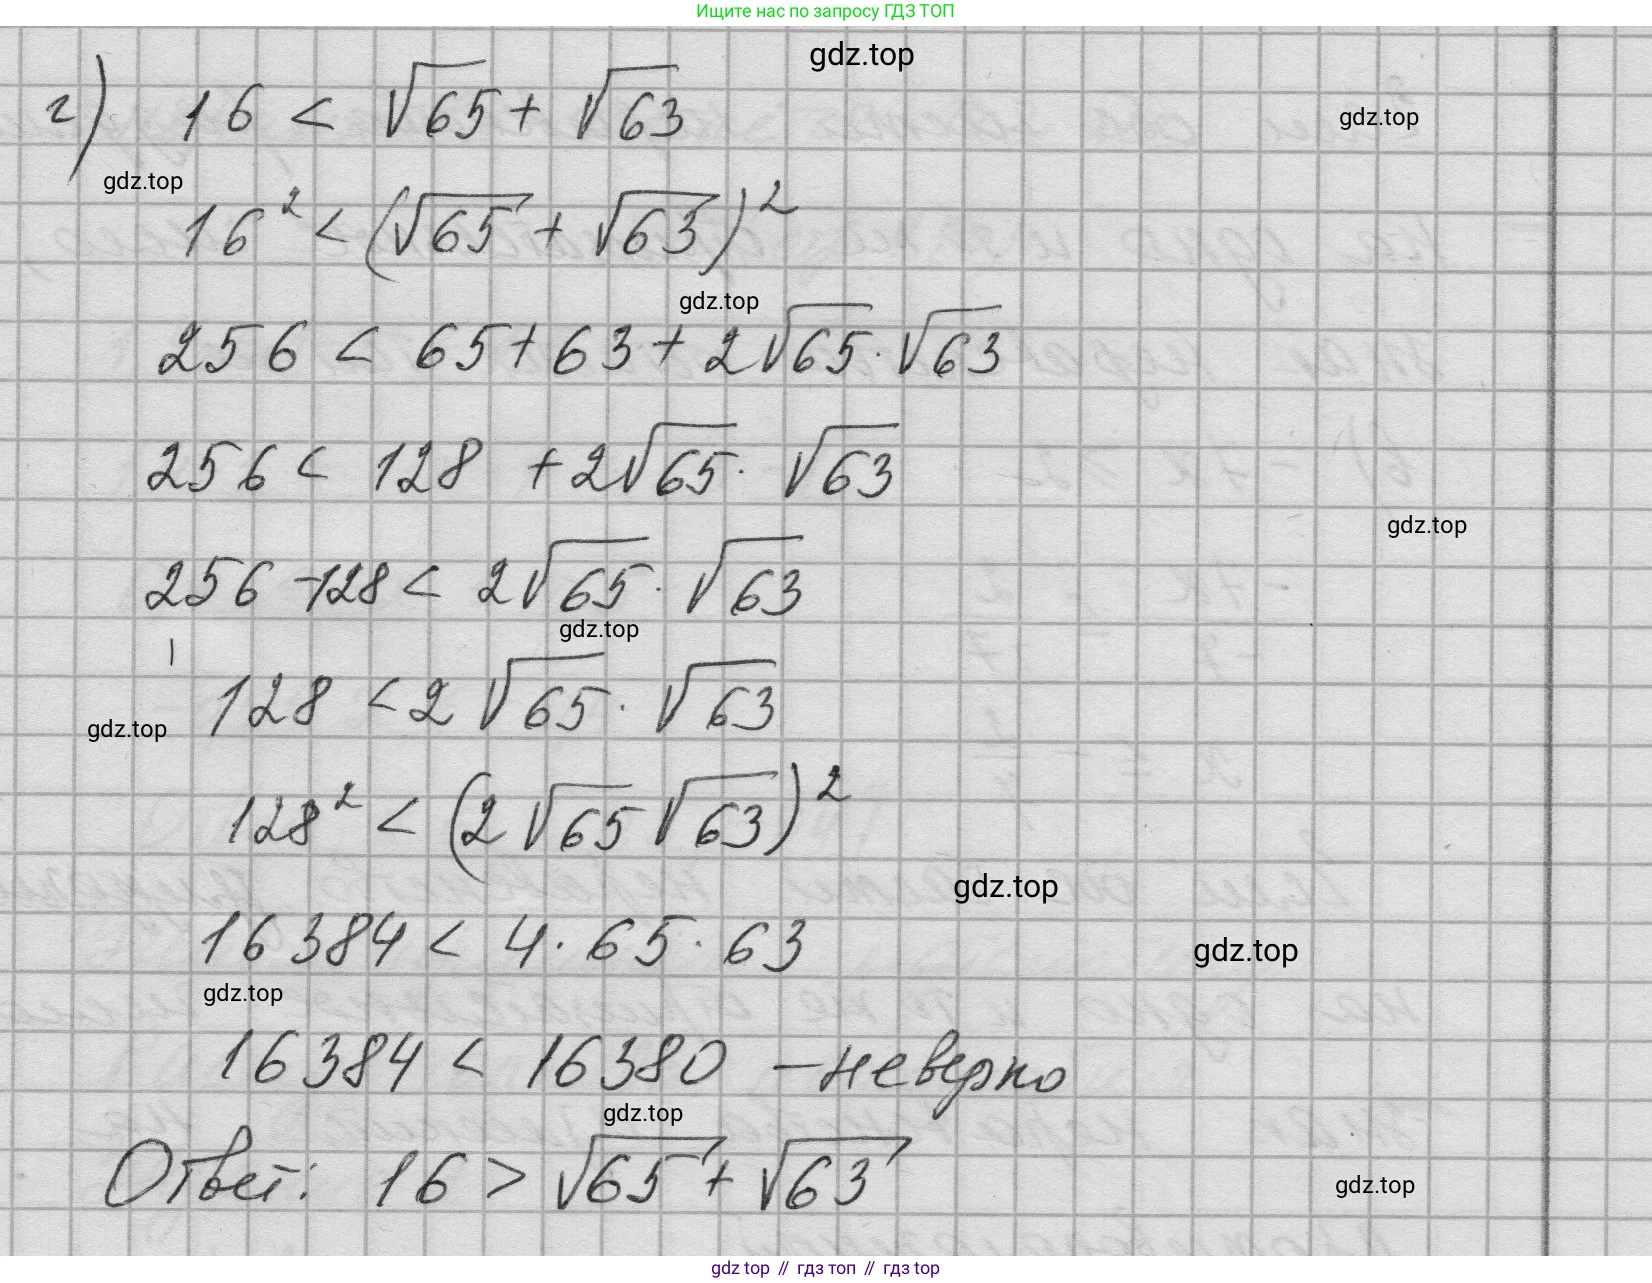 Ищите нас по запросу ГДЗ ТОП
gdz.top
г) 16 < √65 + √63
gdz.top
gdz.top
16² < (√65 + √63)²
gdz.top
256 < 65 + 63 + 2√65 · √63
256 < 128 + 2√65 · √63
gdz.top
256 - 128 < 2√65 · √63
gdz.top
128 < 2√65 · √63
gdz.top
128² < (2√65 √63)²
gdz.top
16384 < 4 · 65 · 63
gdz.top
gdz.top
16384 < 16380 - неверно
gdz.top
Ответ: 16 > √65 + √63
gdz.top
gdz top // гдз топ // gdz top